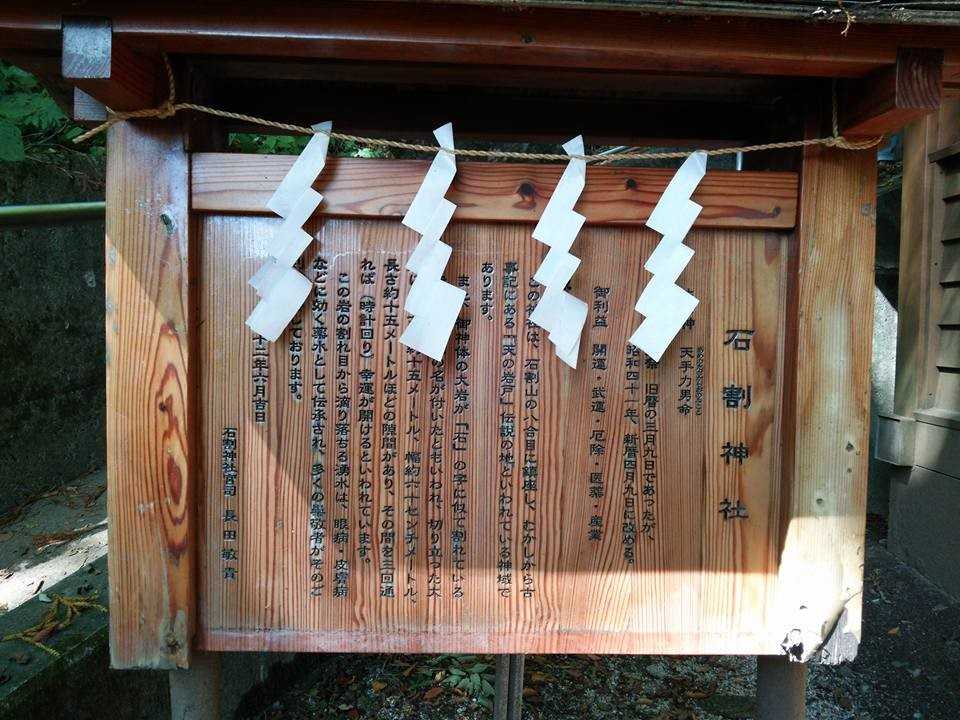 石割神社
神 天手力男命
あめのたぢからおのみこと
祭 旧暦の三月九日であったが、
昭和四十一年、新暦四月九日に改める。
御利益 開運・武運・厄除・医薬・産業
この神社は、石割山の八合目に鎮座し、むかしから古
事記にある「天の岩戸」伝説の地といわれている神域で
あります。
また、御神体の大岩が「石」の字に似て割れている
の名が付いたともいわれ、切り立った大
十五メートル、幅約六十センチメートル、
長さ約十五メートルほどの隙間があり、その間を三回通
れば（時計回り）幸運が開けるといわれています。
この岩の割れ目から滴り落ちる湧水は、眼病・皮膚病
などに効く薬水として伝承され、多くの崇敬者がそのご
ております。
十二年六月吉日
石割神社宮司 長田敏貴